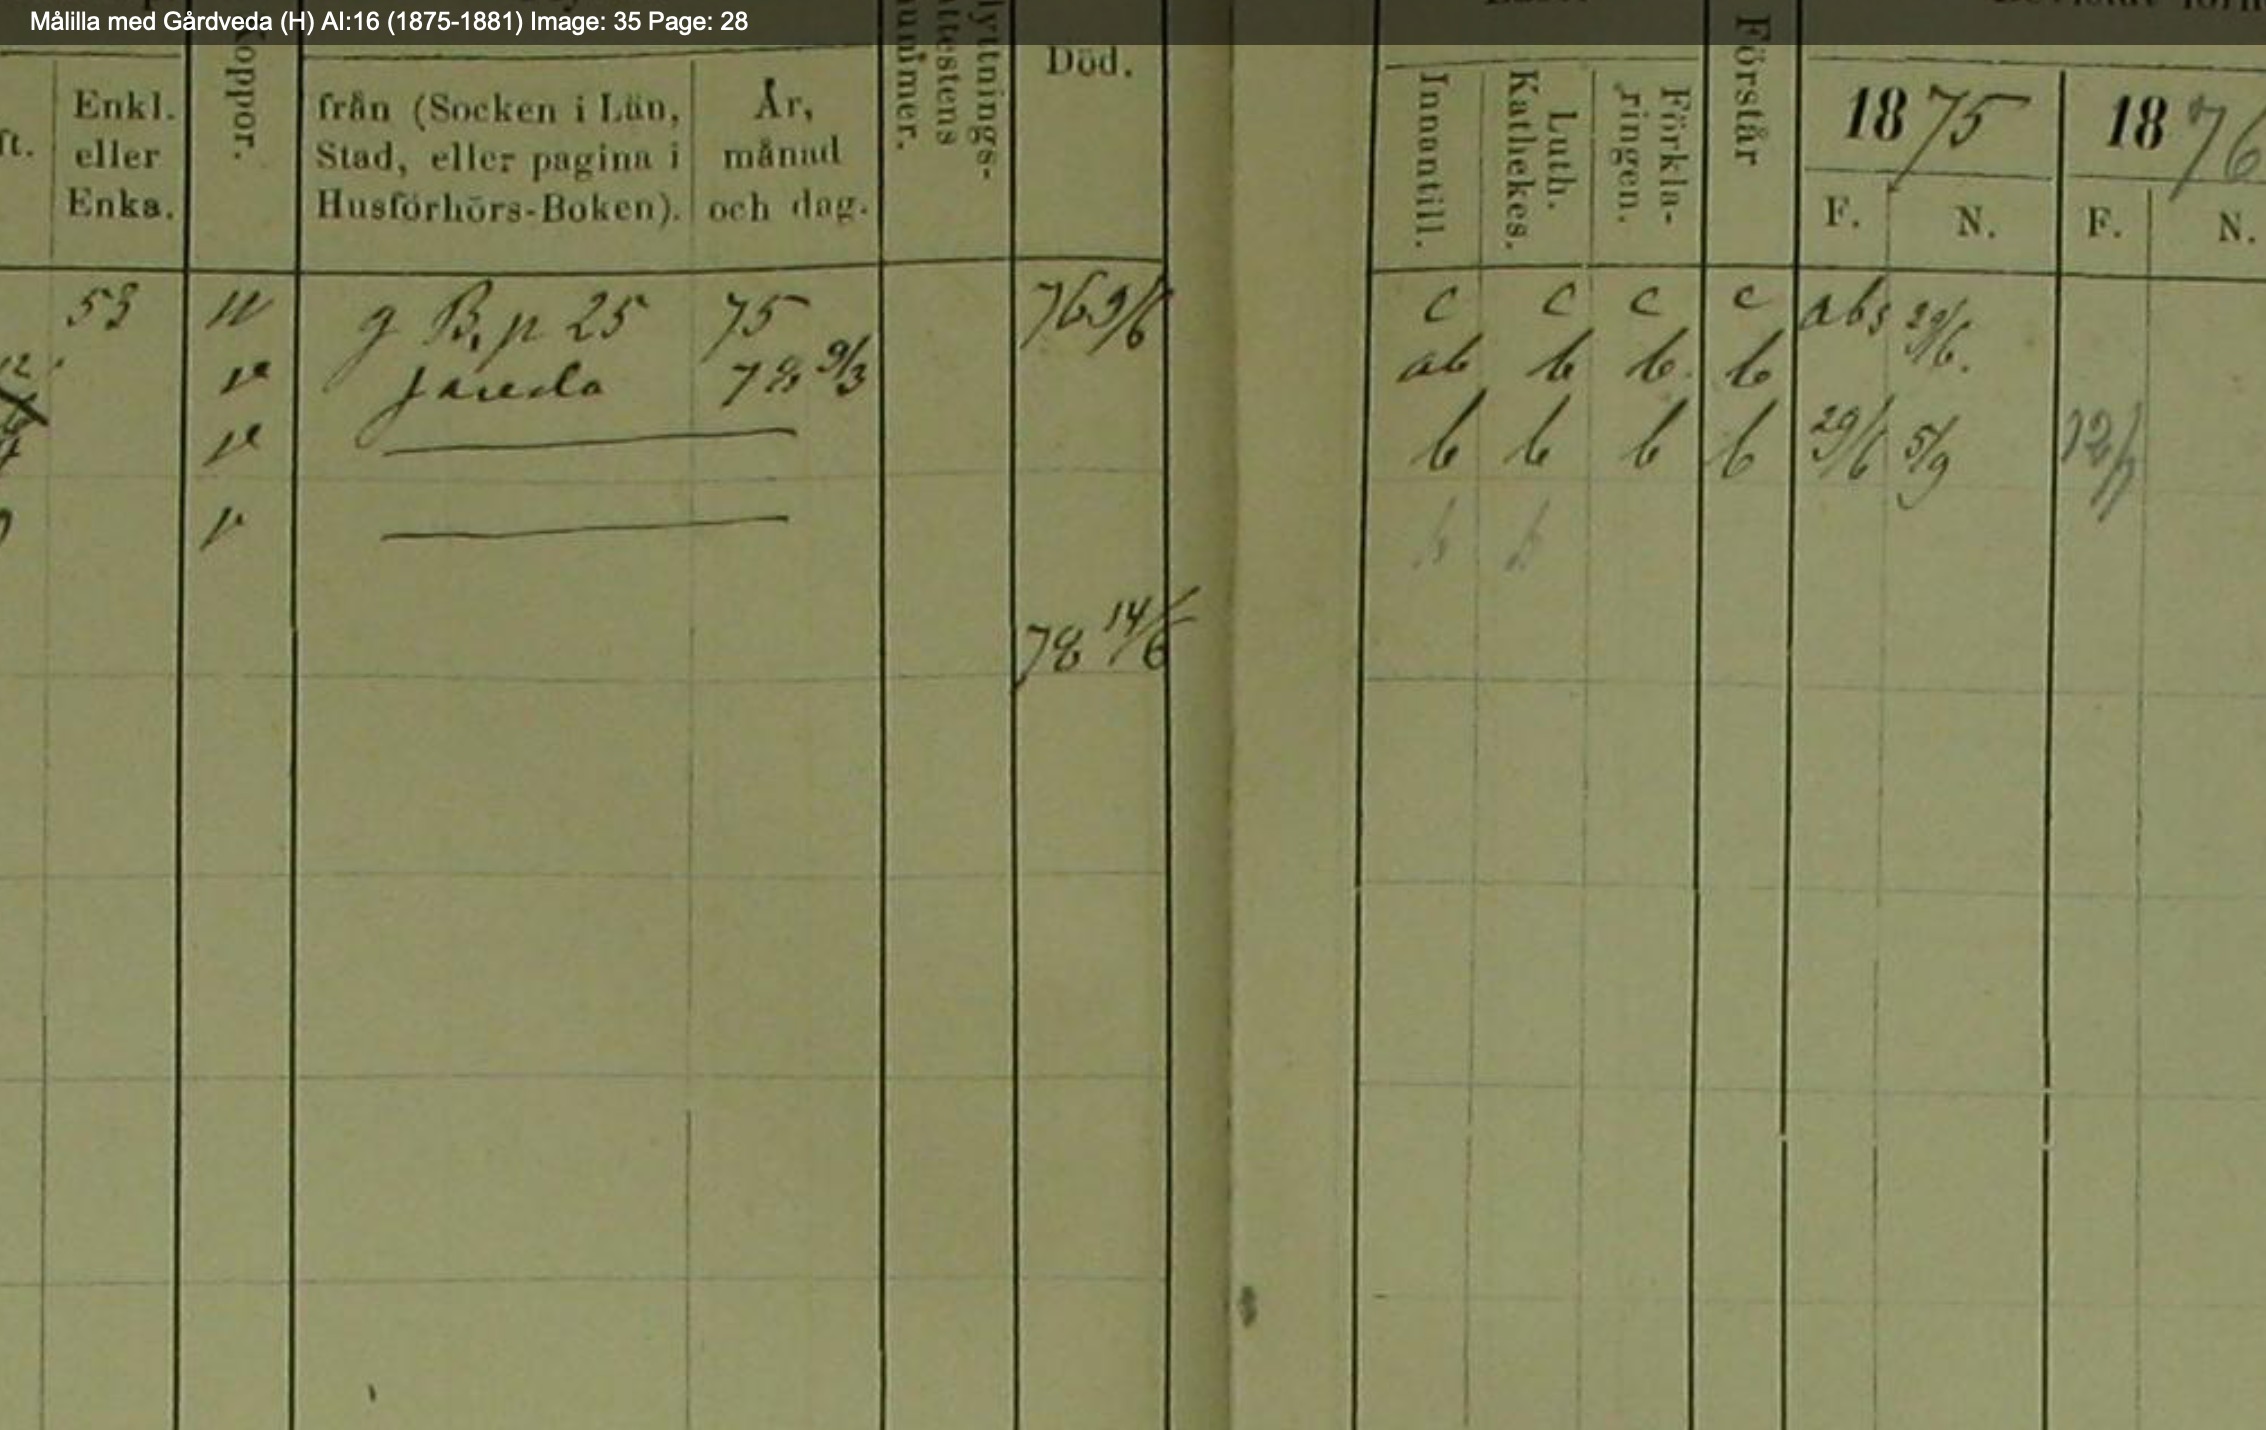 Målilla med Gårdveda (H) AI:16 (1875-1881) Image: 35 Page: 28
Enkl.
eller
Enka.
oppor.
från (Socken i Län,
Stad, eller pagina i
Husförhörs-Boken).
År,
månad
och dag.
lyttnings-
ttestens
nummer.
Död.
Innantill.
Luth.
Kathekes.
Förkla-
ringen.
Förstår
18 75
F. N.
18 76
F. N.
53 v g B, p 25 75 76 9/6 c c c c abs 29/6.
v Järeda 78 9/3 ab b b b
v b b b b 29/6 5/9 12/7
v b b
78 14/6